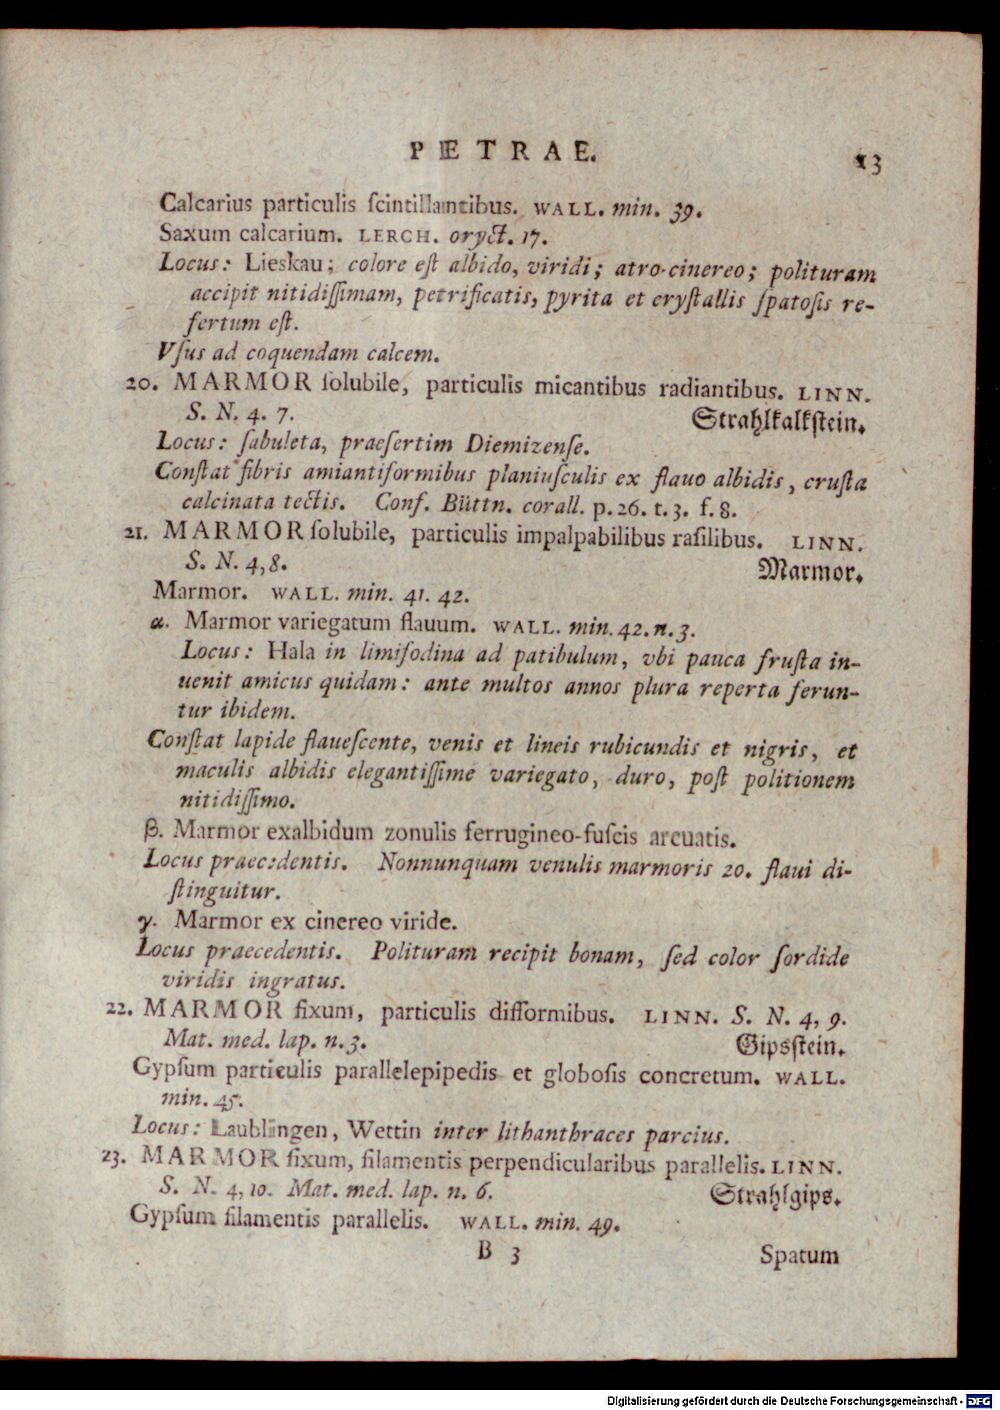 PETRAE. 13
Calcarius particulis ſcintillantibus. WALL. min. 39.
Saxum calcarium. LERCH. oryct. 17.
Locus: Lieskau; colore eſt albido, viridi; atro-cinereo; polituram
accipit nitidiſſimam, petrificatis, pyrita et cryſtallis ſpatoſis re-
fertum eſt.
Vſus ad coquendam calcem.
20. MARMOR ſolubile, particulis micantibus radiantibus. LINN.
S. N. 4. 7. Strahlkalkſtein.
Locus: ſabuleta, praeſertim Diemizenſe.
Conſtat fibris amiantiformibus planiuſculis ex flauo albidis, cruſta
calcinata tectis. Conf. Büttn. corall. p. 26. t. 3. f. 8.
21. MARMOR ſolubile, particulis impalpabilibus raſilibus. LINN.
S. N. 4, 8. Marmor.
Marmor. WALL. min. 41. 42.
α. Marmor variegatum flauum. WALL. min. 42. n. 3.
Locus: Hala in limifodina ad patibulum, vbi pauca fruſta in-
uenit amicus quidam: ante multos annos plura reperta ferun-
tur ibidem.
Conſtat lapide flaueſcente, venis et lineis rubicundis et nigris, et
maculis albidis elegantiſſime variegato, duro, poſt politionem
nitidiſſimo.
β. Marmor exalbidum zonulis ferrugineo-fuſcis arcuatis.
Locus praecedentis. Nonnunquam venulis marmoris 20. flaui di-
ſtinguitur.
γ. Marmor ex cinereo viride.
Locus praecedentis. Polituram recipit bonam, ſed color ſordide
viridis ingratus.
22. MARMOR fixum, particulis difformibus. LINN. S. N. 4, 9.
Mat. med. lap. n. 3. Gipsſtein.
Gypſum particulis parallelepipedis et globoſis concretum. WALL.
min. 45.
Locus: Laublingen, Wettin inter lithanthraces parcius.
23. MARMOR fixum, filamentis perpendicularibus parallelis. LINN.
S. N. 4, 10. Mat. med. lap. n. 6. Strahlgips.
Gypſum filamentis parallelis. WALL. min. 49.
B 3 Spatum
Digitalisierung gefördert durch die Deutsche Forschungsgemeinschaft - DFG